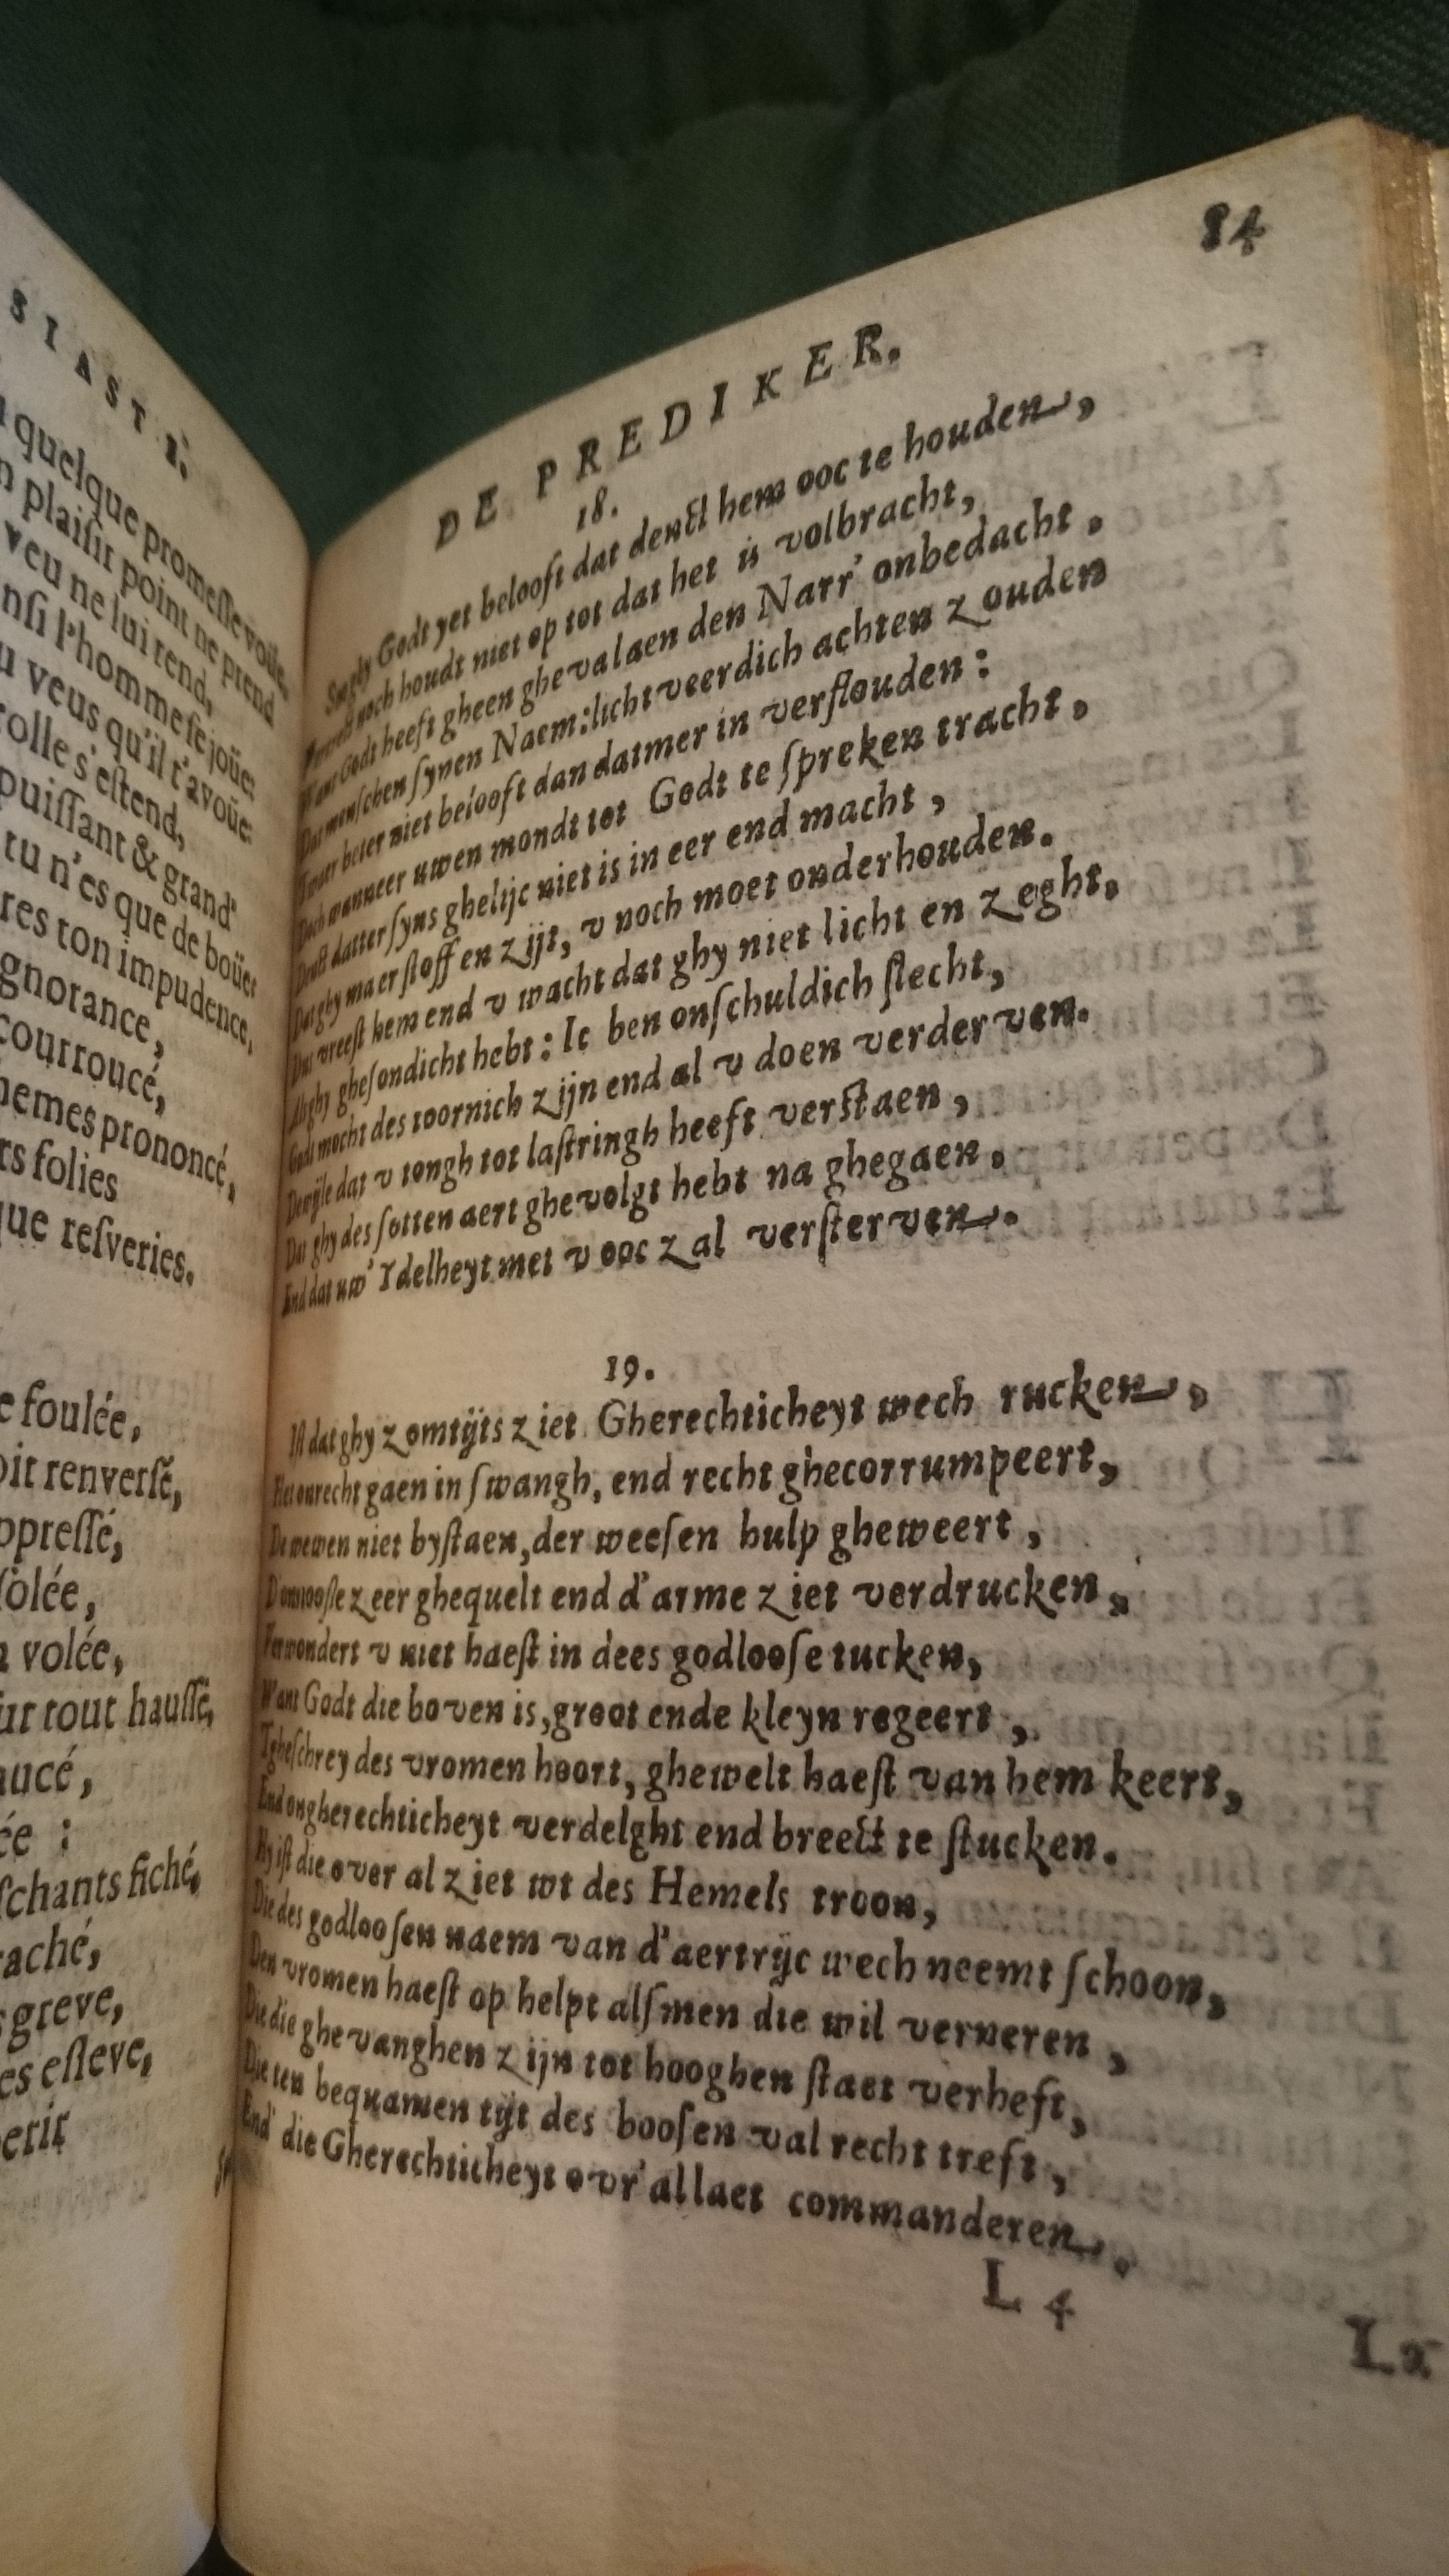 SIASTE.
quelque promesse voüe,
plaisir point ne prend
veu ne lui rend,
l'homme se joüe:
veus qu'il t'avoüe
s'estend,
puissant & grand
tu n'es que de boüe:
ton impudence,
courroucé,
prononcé,
folies
resveries.
foulée,
renversé,
volée,
tout haussé,
fiché,
greve,
esleve,
DE PREDIKER.
84
18.
Godt yet belooft dat denct hem ooc te houden,
noch houdt niet op tot dat het is volbracht,
Want Godt heeft gheen ghevalaen den Narr' onbedacht.
Dat menschen synen Naem: lichtveerdich achten zouden
beter niet belooft dan datmer in verflouden:
Doch wanneer uwen mondt tot Godt te spreken tracht.
datter syns ghelijc niet is in eer end macht,
Dat ghy maer stoff en zijt, v noch moet onderhouden.
Dus vreest hem end v wacht dat ghy niet licht en zeght.
ghy ghesondicht hebt: Ic ben onschuldich slecht,
Godt mocht des toornich zijn end al v doen verderven.
Dewijle dat v tongh tot lastringh heeft verstaen,
Dat ghy des sotten aert ghevolgt hebt na ghegaen.
End dat uw' Ydelheyt met v ooc zal versterven.
19.
Ist dat ghy zomtijts ziet Gherechticheyt wech rucken,
Het onrecht gaen in swangh, end recht ghecorrumpeert,
De wewen niet bystaen, der weesen hulp gheweert,
D'onnoosle zeer ghequelt end d'arme ziet verdrucken,
Verwondert v niet haest in dees godloose tucken,
Want Godt die boven is, groot ende kleyn regeert,
Tgheschrey des vromen hoort, ghewelt haest van hem keert,
End ongherechticheyt verdelght end breect te stucken.
Hy ist die over al ziet wt des Hemels troon,
Die des godloosen naem van d'aertrijc wech neemt schoon,
Den vromen haest op helpt alsmen die wil verneren,
Die die ghevanghen zijn tot hooghen staet verheft,
Die ten bequamen tijt des boosen val recht treft,
End' die Gherechticheyt ovr' al laet commanderen.
L 4